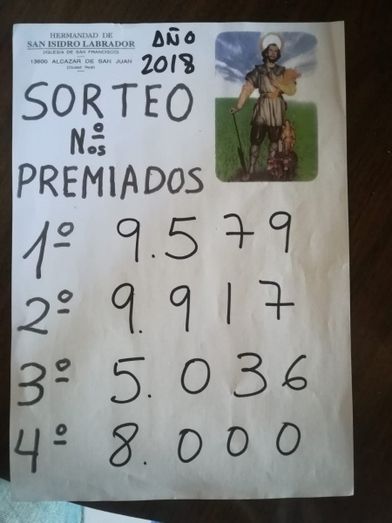 HERMANDAD DE
SAN ISIDRO LABRADOR
(IGLESIA DE SAN FRANCISCO)
13600 ALCAZAR DE SAN JUAN
(Ciudad Real)
AÑO
2018
SORTEO
Nºos
PREMIADOS
1º 9.579
2º 9.917
3º 5.036
4º 8.000